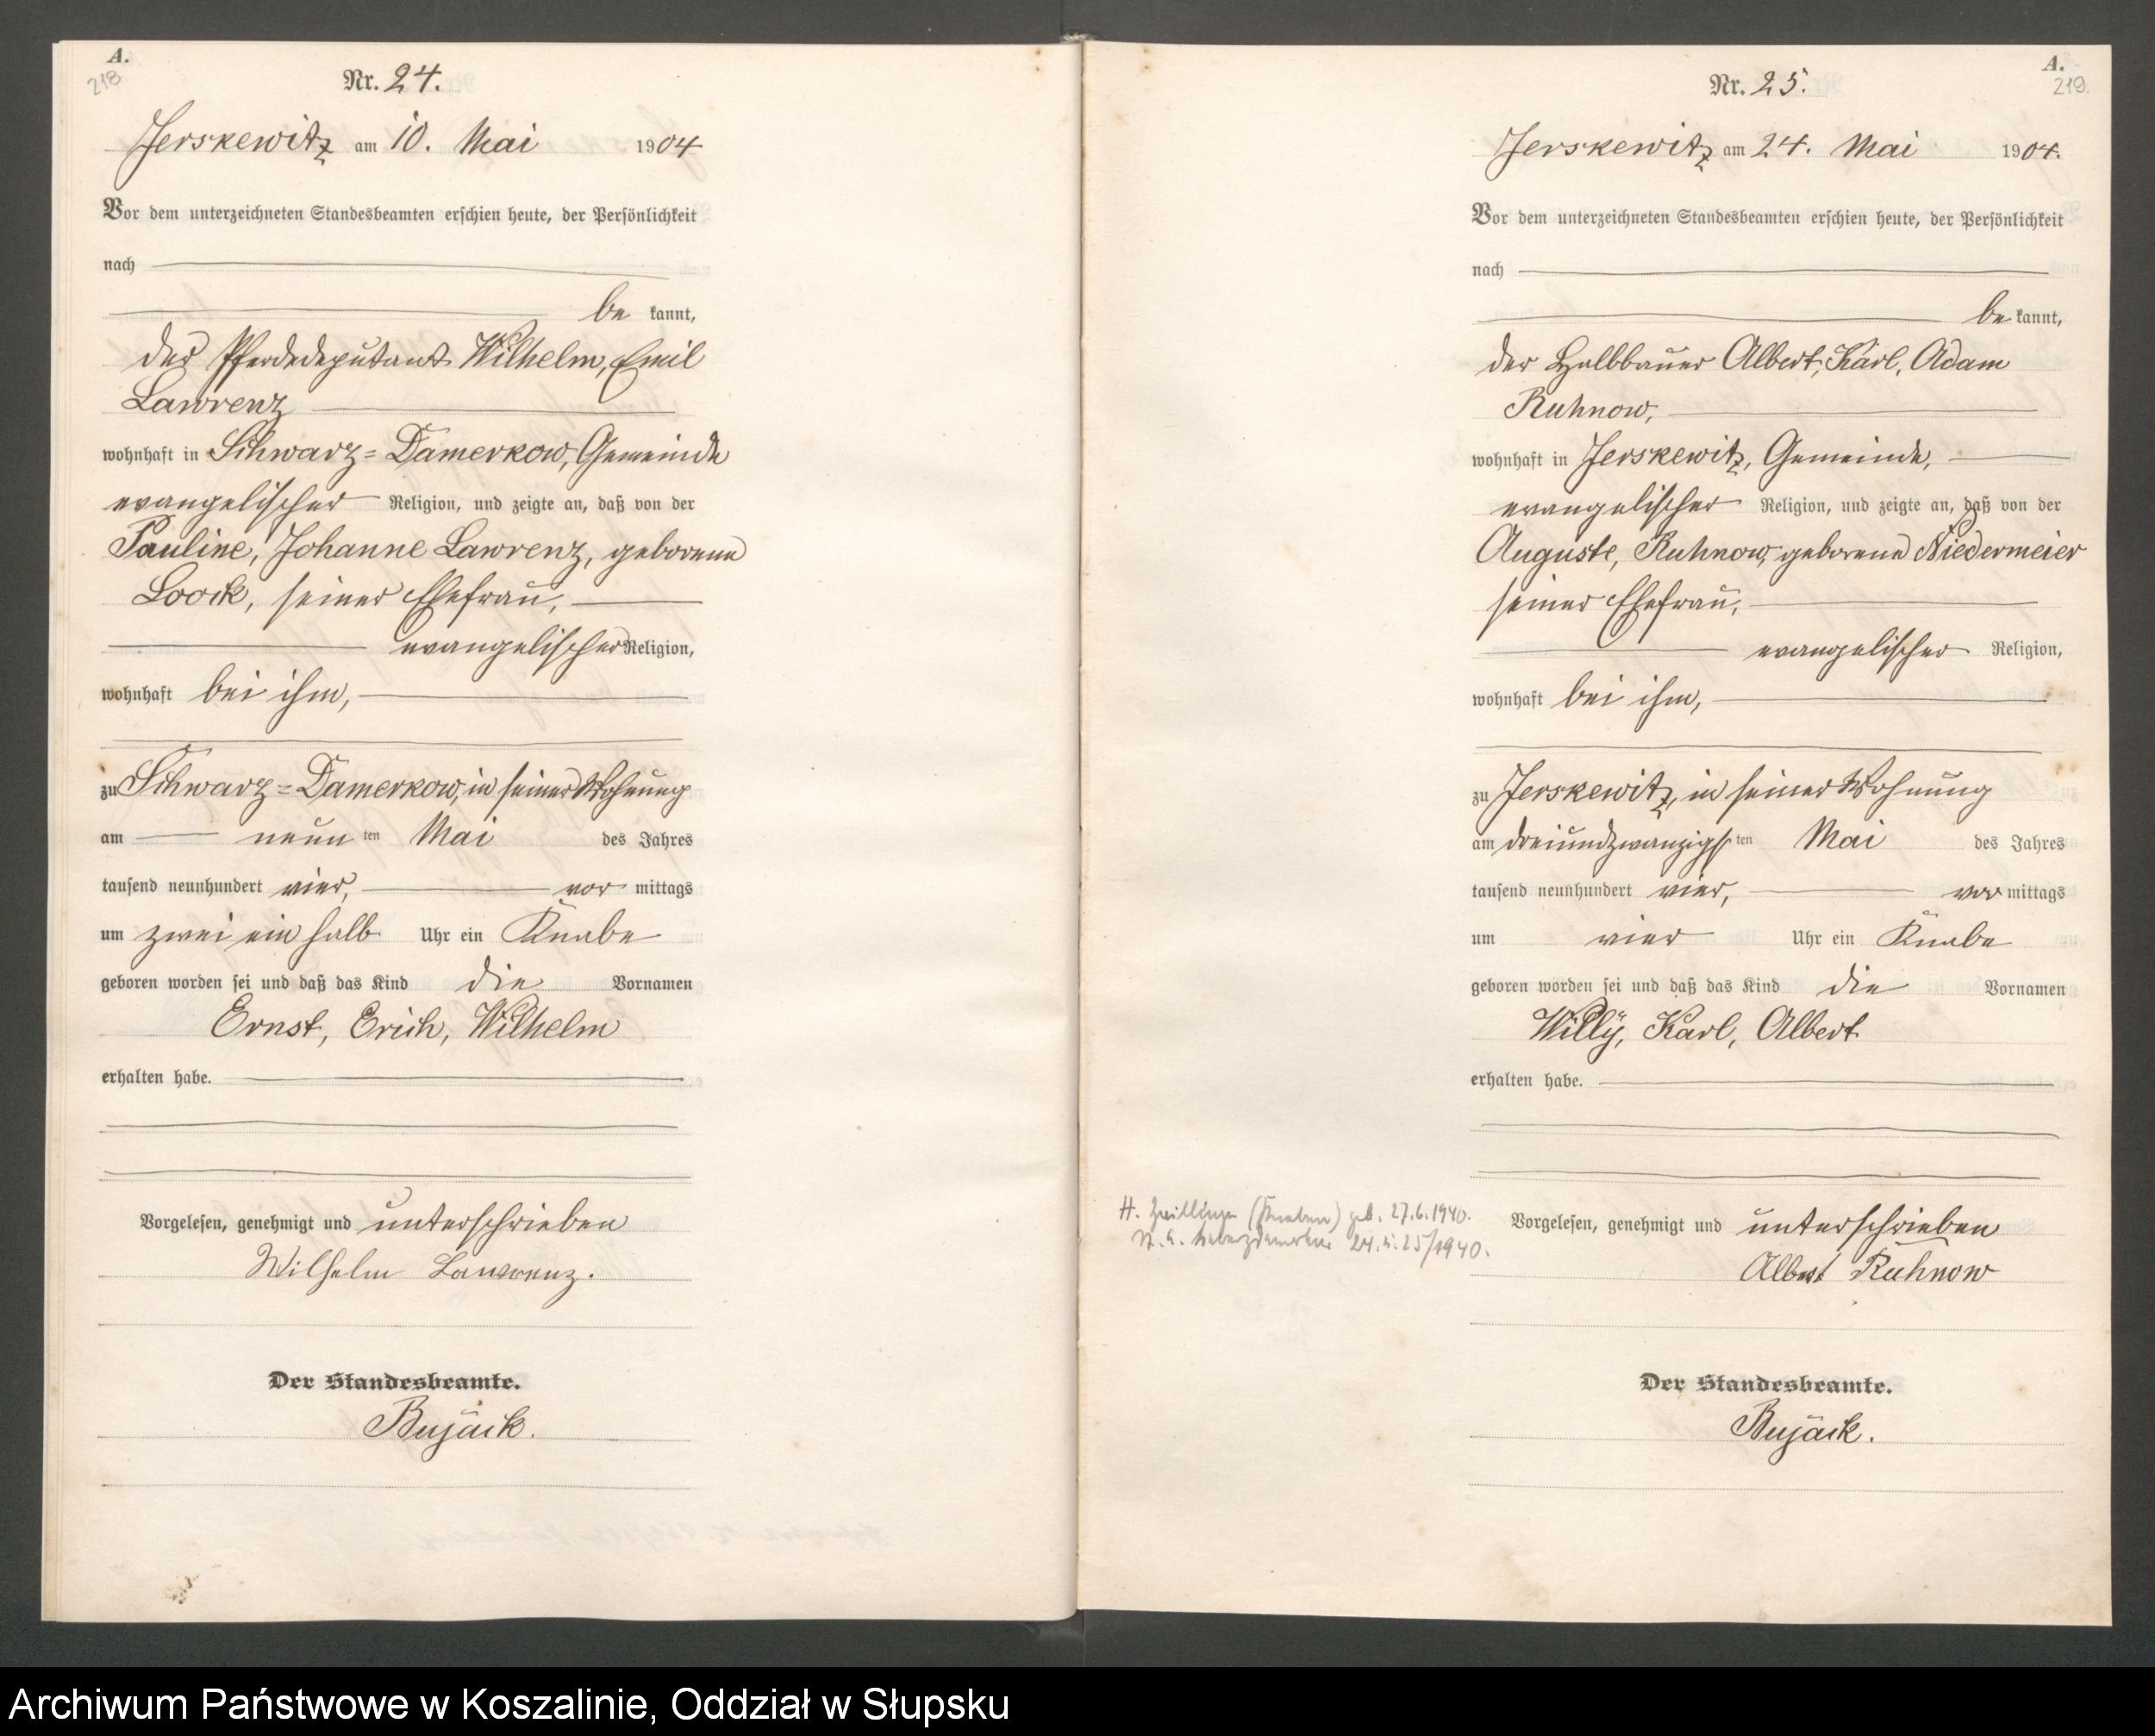 A.
218
Nr. 24.
Jerskewitz am 10. Mai 1904
Vor dem unterzeichneten Standesbeamten erschien heute, der Persönlichkeit
nach
be kannt,
der Pferdedeputant Wilhelm, Emil
Lawrenz
wohnhaft in Schwarz=Damerkow, Gemeinde
evangelischer Religion, und zeigte an, daß von der
Pauline, Johanne Lawrenz, geborene
Loock, seiner Ehefrau,
evangelischer Religion,
wohnhaft bei ihm,
zu Schwarz=Damerkow, in seiner Wohnung
am neun ten Mai des Jahres
tausend neunhundert vier, vor mittags
um zwei ein halb Uhr ein Knabe
geboren worden sei und daß das Kind die Vornamen
Ernst, Erich, Wilhelm
erhalten habe.
Vorgelesen, genehmigt und unterschrieben
Wilhelm Lawrenz.
Der Standesbeamte.
Bujack.
A.
219.
Nr. 25.
Jerskewitz am 24. Mai 1904.
Vor dem unterzeichneten Standesbeamten erschien heute, der Persönlichkeit
nach
be kannt,
der Halbbauer Albert, Karl, Adam
Ruhnow,
wohnhaft in Jerskewitz, Gemeinde,
evangelischer Religion, und zeigte an, daß von der
Auguste, Ruhnow, geborene Niedermeier
seiner Ehefrau,
evangelischer Religion,
wohnhaft bei ihm,
zu Jerskewitz, in seiner Wohnung
am dreiundzwanzigs ten Mai des Jahres
tausend neunhundert vier, vor mittags
um vier Uhr ein Knabe
geboren worden sei und daß das Kind die Vornamen
Willy, Karl, Albert
erhalten habe.
H. Zwillinge (Knaben) geb. 27.6.1940.
24. u. 25/1940.
Vorgelesen, genehmigt und unterschrieben
Albert Ruhnow
Der Standesbeamte.
Bujack.
Archiwum Państwowe w Koszalinie, Oddział w Słupsku